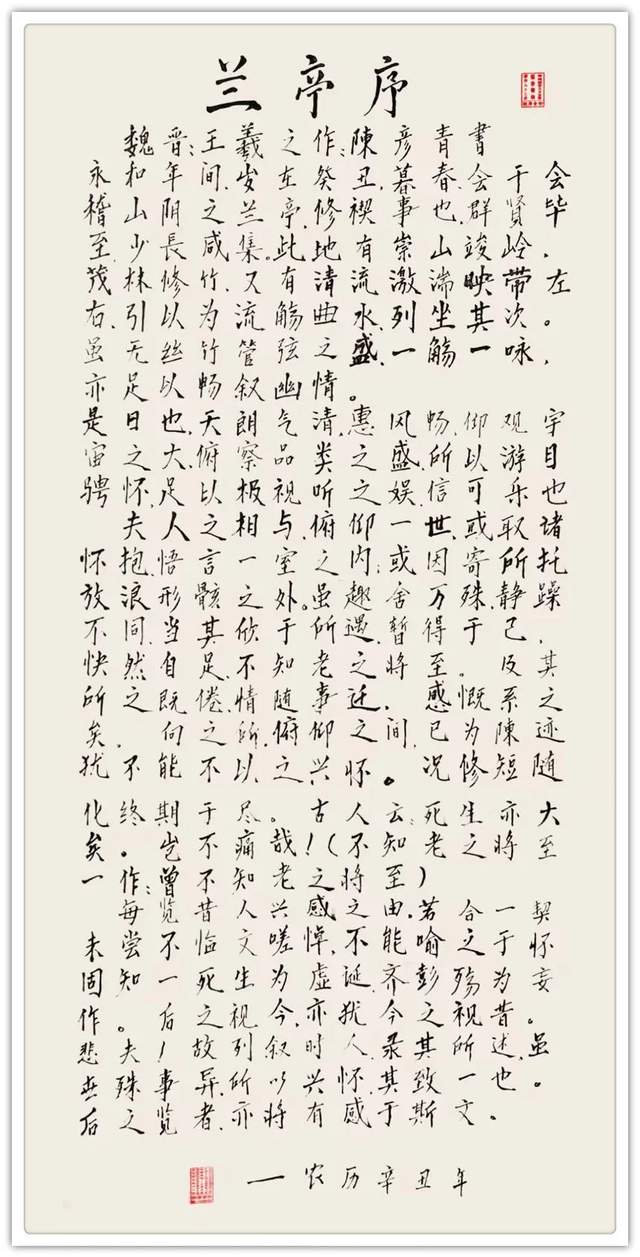 兰亭序
魏晋:王羲之作:陳彦青書
永和年间,岁在癸丑,暮春会于会
稽山阴之兰亭,修禊事也,群贤毕
至,少長咸集。此地有崇山竣岭,
茂林修竹,又有清流激湍映带左
右,引以为流觞曲水,列坐其次。
虽无丝竹管弦之盛,一觞一咏,
亦足以畅叙幽情。
是日也,天朗气清,惠风畅,仰观宇
宙之大,俯察品类之盛,所以游目
骋怀,足以极视听之娱,信可乐也
夫人之相与,俯仰一世,或取诸
怀抱,悟言一室之内,或因寄所托,
放浪形骸之外。虽趣舍万殊,静躁
不同,当其欣于所遇,暂得于己,
快然自足,不知老之将至。及其
所之既倦,情随事迁,感慨系之
矣。向之所欣,俯仰之间,已为陳迹
犹不能不以之兴怀。况修短随
化,终期于尽。古人云:死生亦大
矣。岂不痛哉!(不知老之将至
一作:曾不知老之将至)
每览昔人兴感之由,若合一契
未尝不临文嗟悼,不能喻之于怀
固知一死生为虚诞,齐彭殇为妄
作。后之视今,亦犹今之视昔
悲夫!故列叙时人,录其所述,虽
世殊事异,所以兴怀,其致一也。
后之览者,亦将有感于斯文。
一农历辛丑年